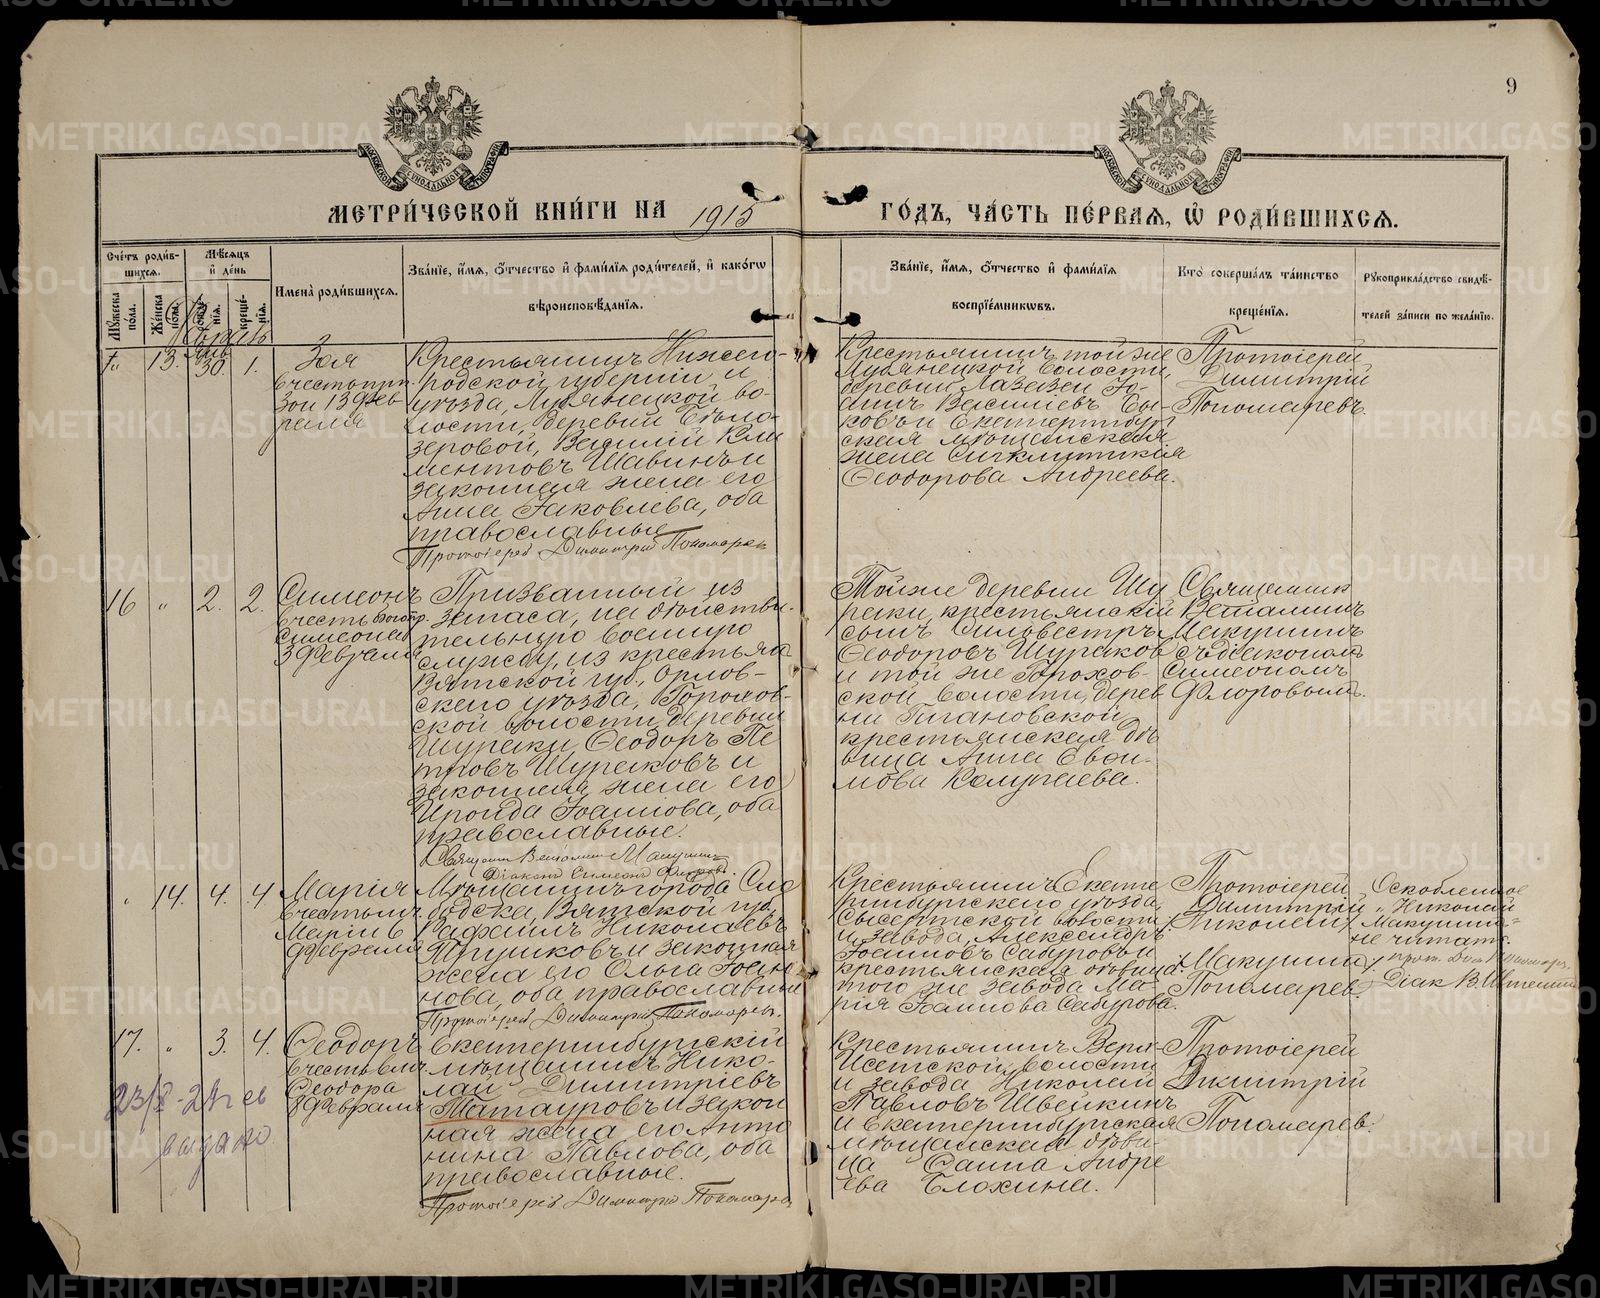 9
МЕТРИ́ЧЕСКОЙ КНИ́ГИ НА 1915 ГО́ДЪ, ЧА́СТЬ ПЕ́РВАЯ, Ѡ҆ РОДИ́ВШИХСЯ.
Сче́тъ роди́вшихся.
Мѣ́сяцъ и҆ де́нь
Мꙋ́жеска по́ла.
Же́нска по́ла.
креще́нїя.
И҆мена̀ роди́вшихся.
Зва́нїе, и҆́мя, ѻ҆́тчество и҆ фами́лїя роди́телей, и҆ како́гѡ вѣроисповѣ́данїя.
Зва́нїе, и҆́мя, ѻ҆́тчество и҆ фами́лїя воспрїе́мникѡвъ.
Кто̀ соверша́лъ та́инство креще́нїя.
Рꙋкоприкла́дство свидѣ́телей за́писи по жела́нїю.
Февраль
Янв
„ 13. 30 1.
Зоя
въ честь прп.
Зои 13 Фев-
раля
Крестьянинъ Нижего-
родской губерніи и
уѣзда, Лубянецкой во-
лости, деревни Бѣло-
зеровой, Василій Кли
ментовъ Шавинъ и
законная жена его
Анна Іаковлева, оба
православные
Протоіерей Димитрій Пономаревъ
Крестьянинъ той же
Лубянецкой волости,
деревни
Василіевъ Бы-
ковъ и Екатеринбург
ская мѣщанская
жена Синклитикія
Ѳеодорова Андреева.
Протоіерей
Димитрій
Пономаревъ.
16 „ 2. 2.
Симеонъ
въ честь Богопр.
Симеона
3 Февраля
Призванный изъ
запаса, на дѣйстви-
тельную военную
службу, изъ крестьян
Вятской губ., Орлов-
скаго уѣзда, Горохов-
ской волости, деревни
Шураки, Ѳеодоръ Пе
тровъ Шураковъ и
законная жена его
Ираида Іоаннова, оба
православные.
Священ. Веніамин Макушинъ
Діаконъ Симеонъ Флоровъ.
Той же деревни Шу
раки, крестьянскій
сынъ Сильвестръ
Ѳеодоровъ Шураков
и той же Горохов-
ской волости, дерев
ни Гагановской
крестьянская дѣ
вица Анна Евѳи-
мова Колупаева.
Священник
Веніаминъ
Макушинъ
съ діакономъ
Симеономъ
Флоровымъ.
„ 14. 4. 4
Марія
въ честь мч.
Маріи 6
Февраля
Мѣщанинъ города Сло
бодска, Вятской губ.,
Рафаилъ Николаевъ
Трушковъ и законная
жена его Ольга Іоан
нова, оба православные
Протоіерей Димитрій Пономаревъ.
Крестьянинъ Екате
ринбургскаго уѣзда,
Сысертской волости
и завода, Александръ
Іоанновъ Сабуровъ и
крестьянская дѣвица
того же завода Ма-
рія Іоаннова Сабурова.
Протоіерей
Димитрій
Николай
Макушинъ
Пономаревъ.
Оскобленное
„Николай
Макушинъ“
не читать.
17. „ 3. 4.
Ѳеодоръ
въ честь влмч.
Ѳеодора
8 Февраля
Екатеринбургскій
мѣщанинъ Нико-
лай Димитріевъ
Татауровъ и закон
ная жена его Анто
нина Павлова, оба
православные.
Протоіерей Димитрій Пономаревъ
выдано
Крестьянинъ Верх-
Исетской волости
и завода Николай
Павловъ Швейкинъ
и Екатеринбургская
мѣщанская дѣви-
ца Саниа Андре
ева Блохина.
Протоіерей
Димитрій
Пономаревъ.
METRIKI.GASO-URAL.RU